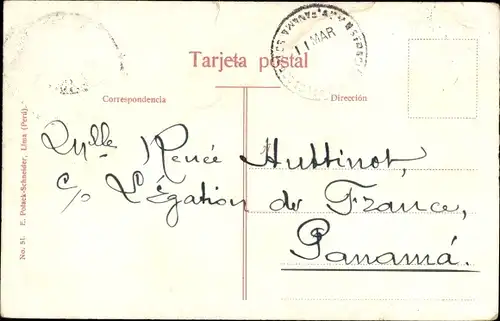 Tarjeta postal
11 MAR
Correspondencia
Dirección
Mlle Renée Huttinot,
c/o Légation de France,
Panamá.
No. 51. E. Polack-Schneider, Lima (Perú).